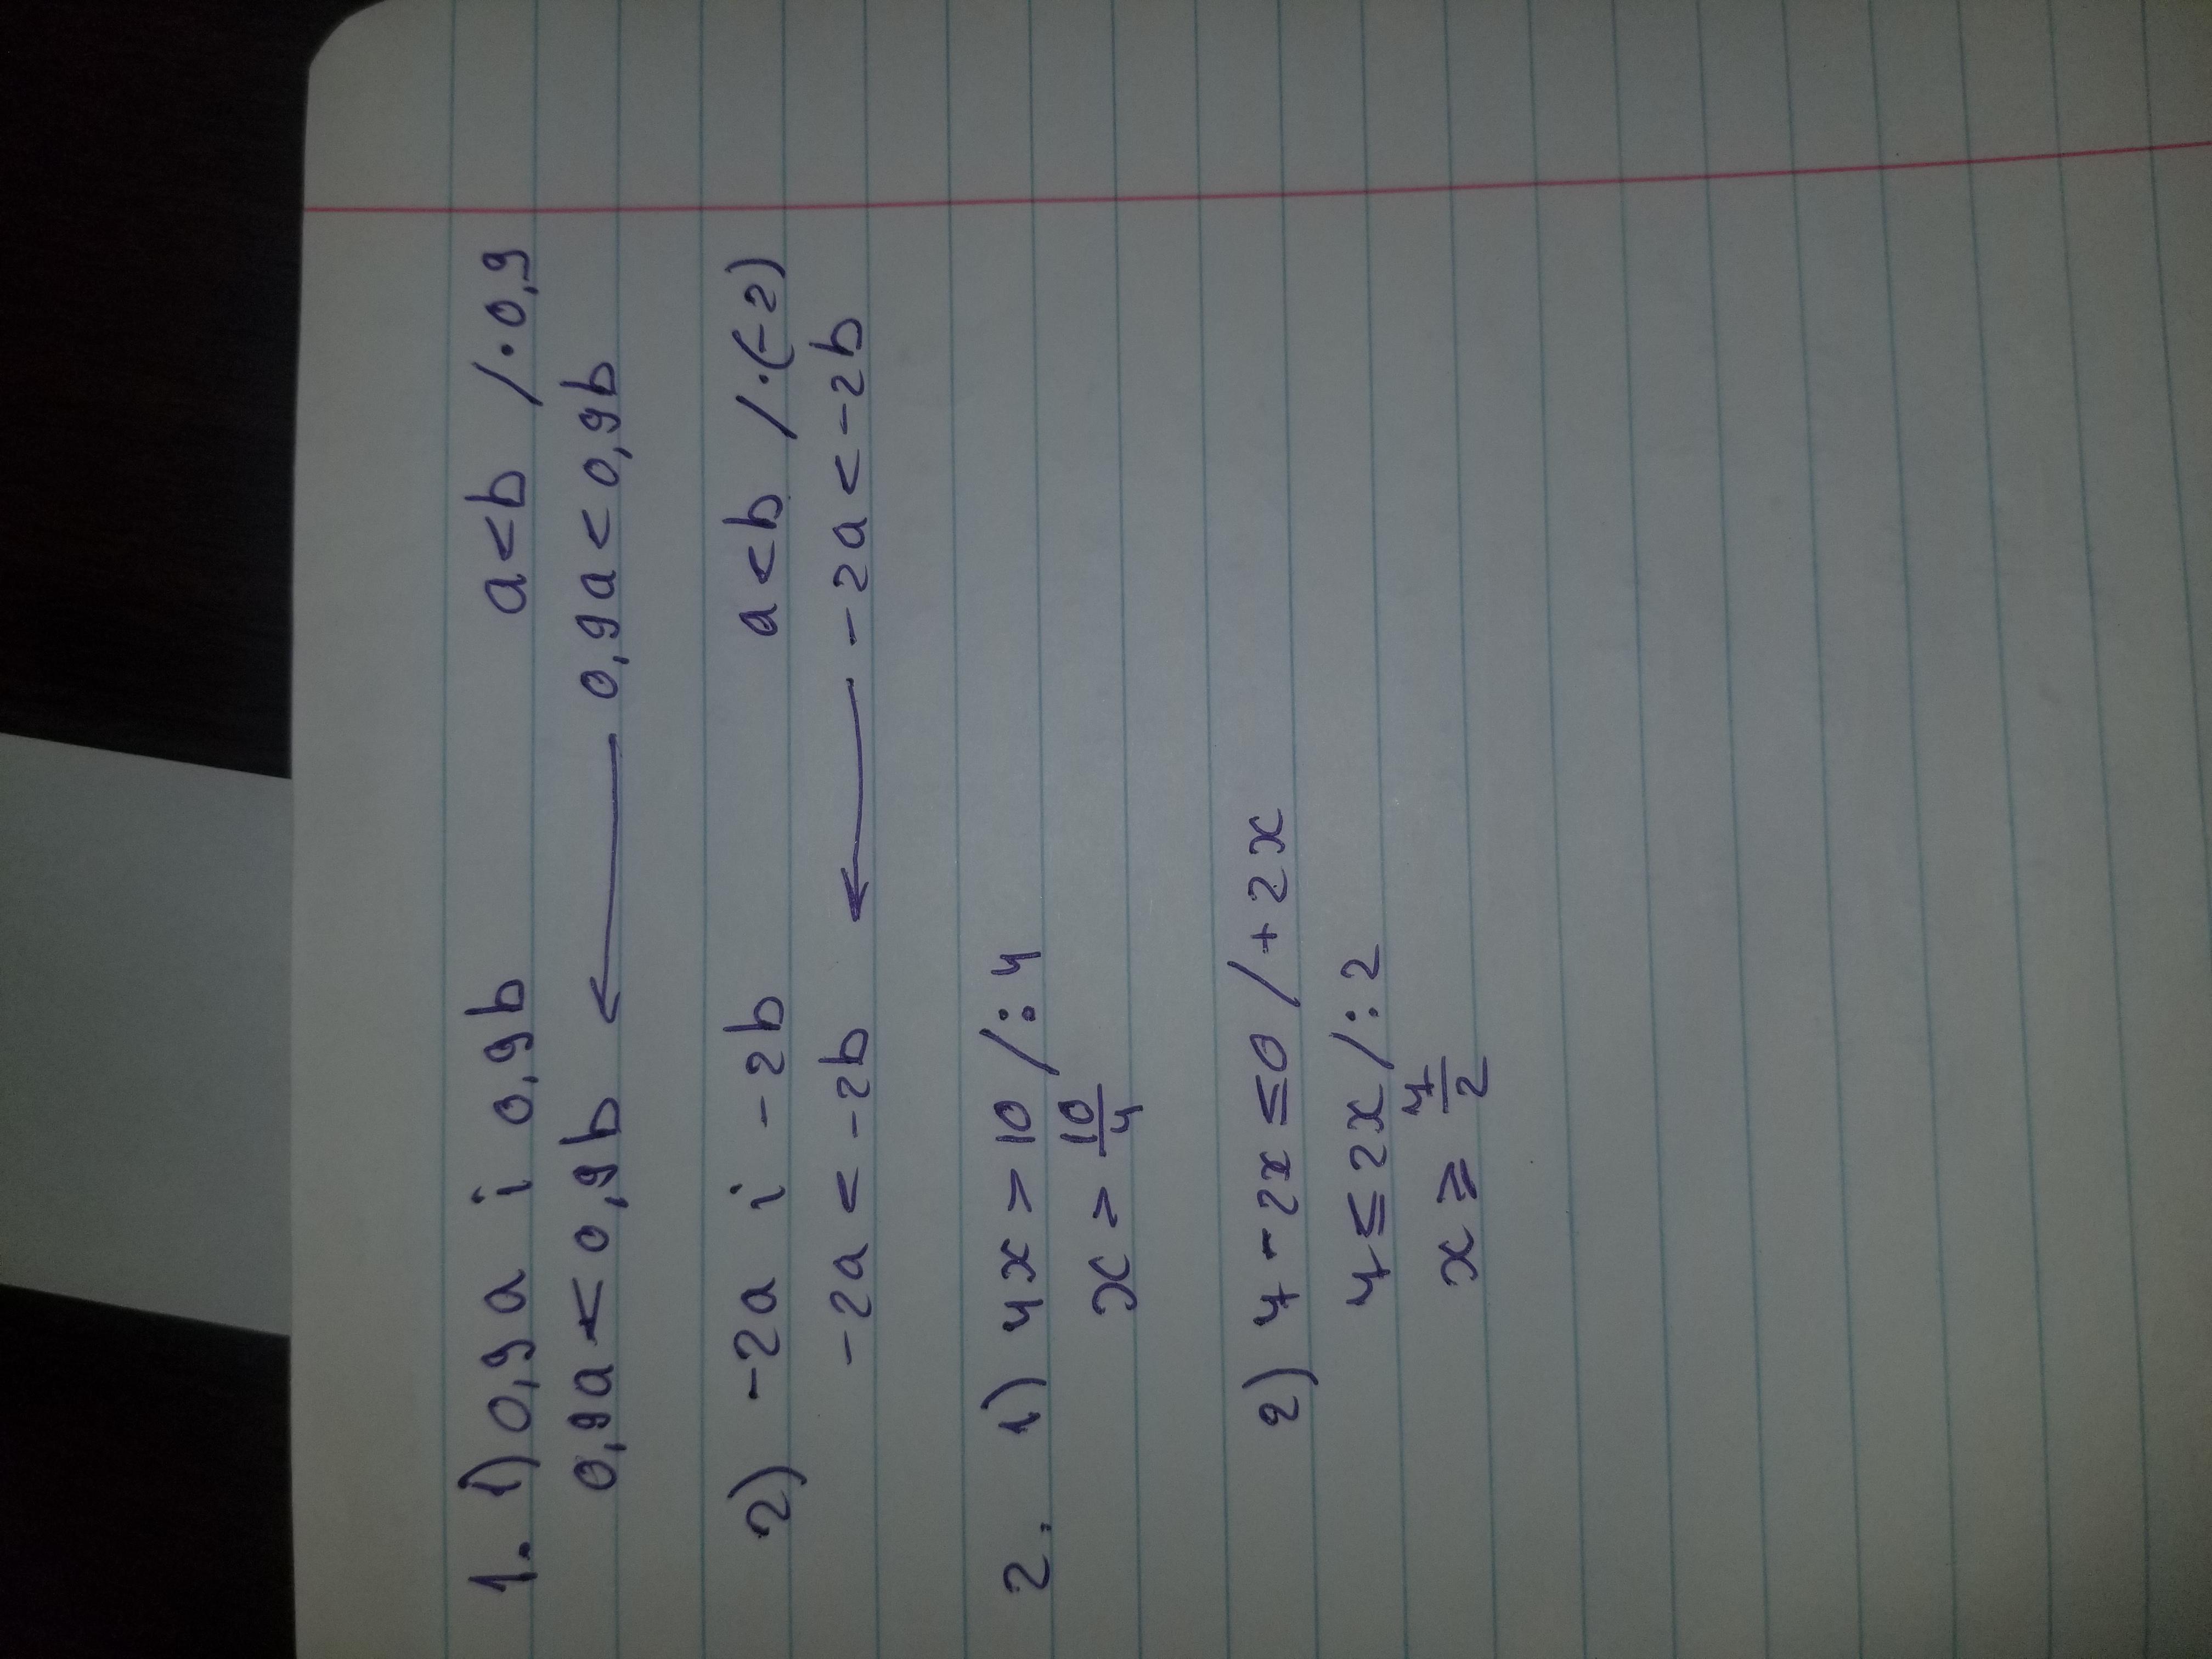 1. 1) 0,9a i 0,9b a<b /·0,9
0,9a < 0,9b ← 0,9a < 0,9b
2) -2a i -2b a<b /·(-2)
-2a < -2b ← -2a < -2b
2. 1) 4x > 10 /:4
x > 10/4
2) 7 - 2x ≤ 0 /+2x
7 ≤ 2x /:2
x ≥ 7/2